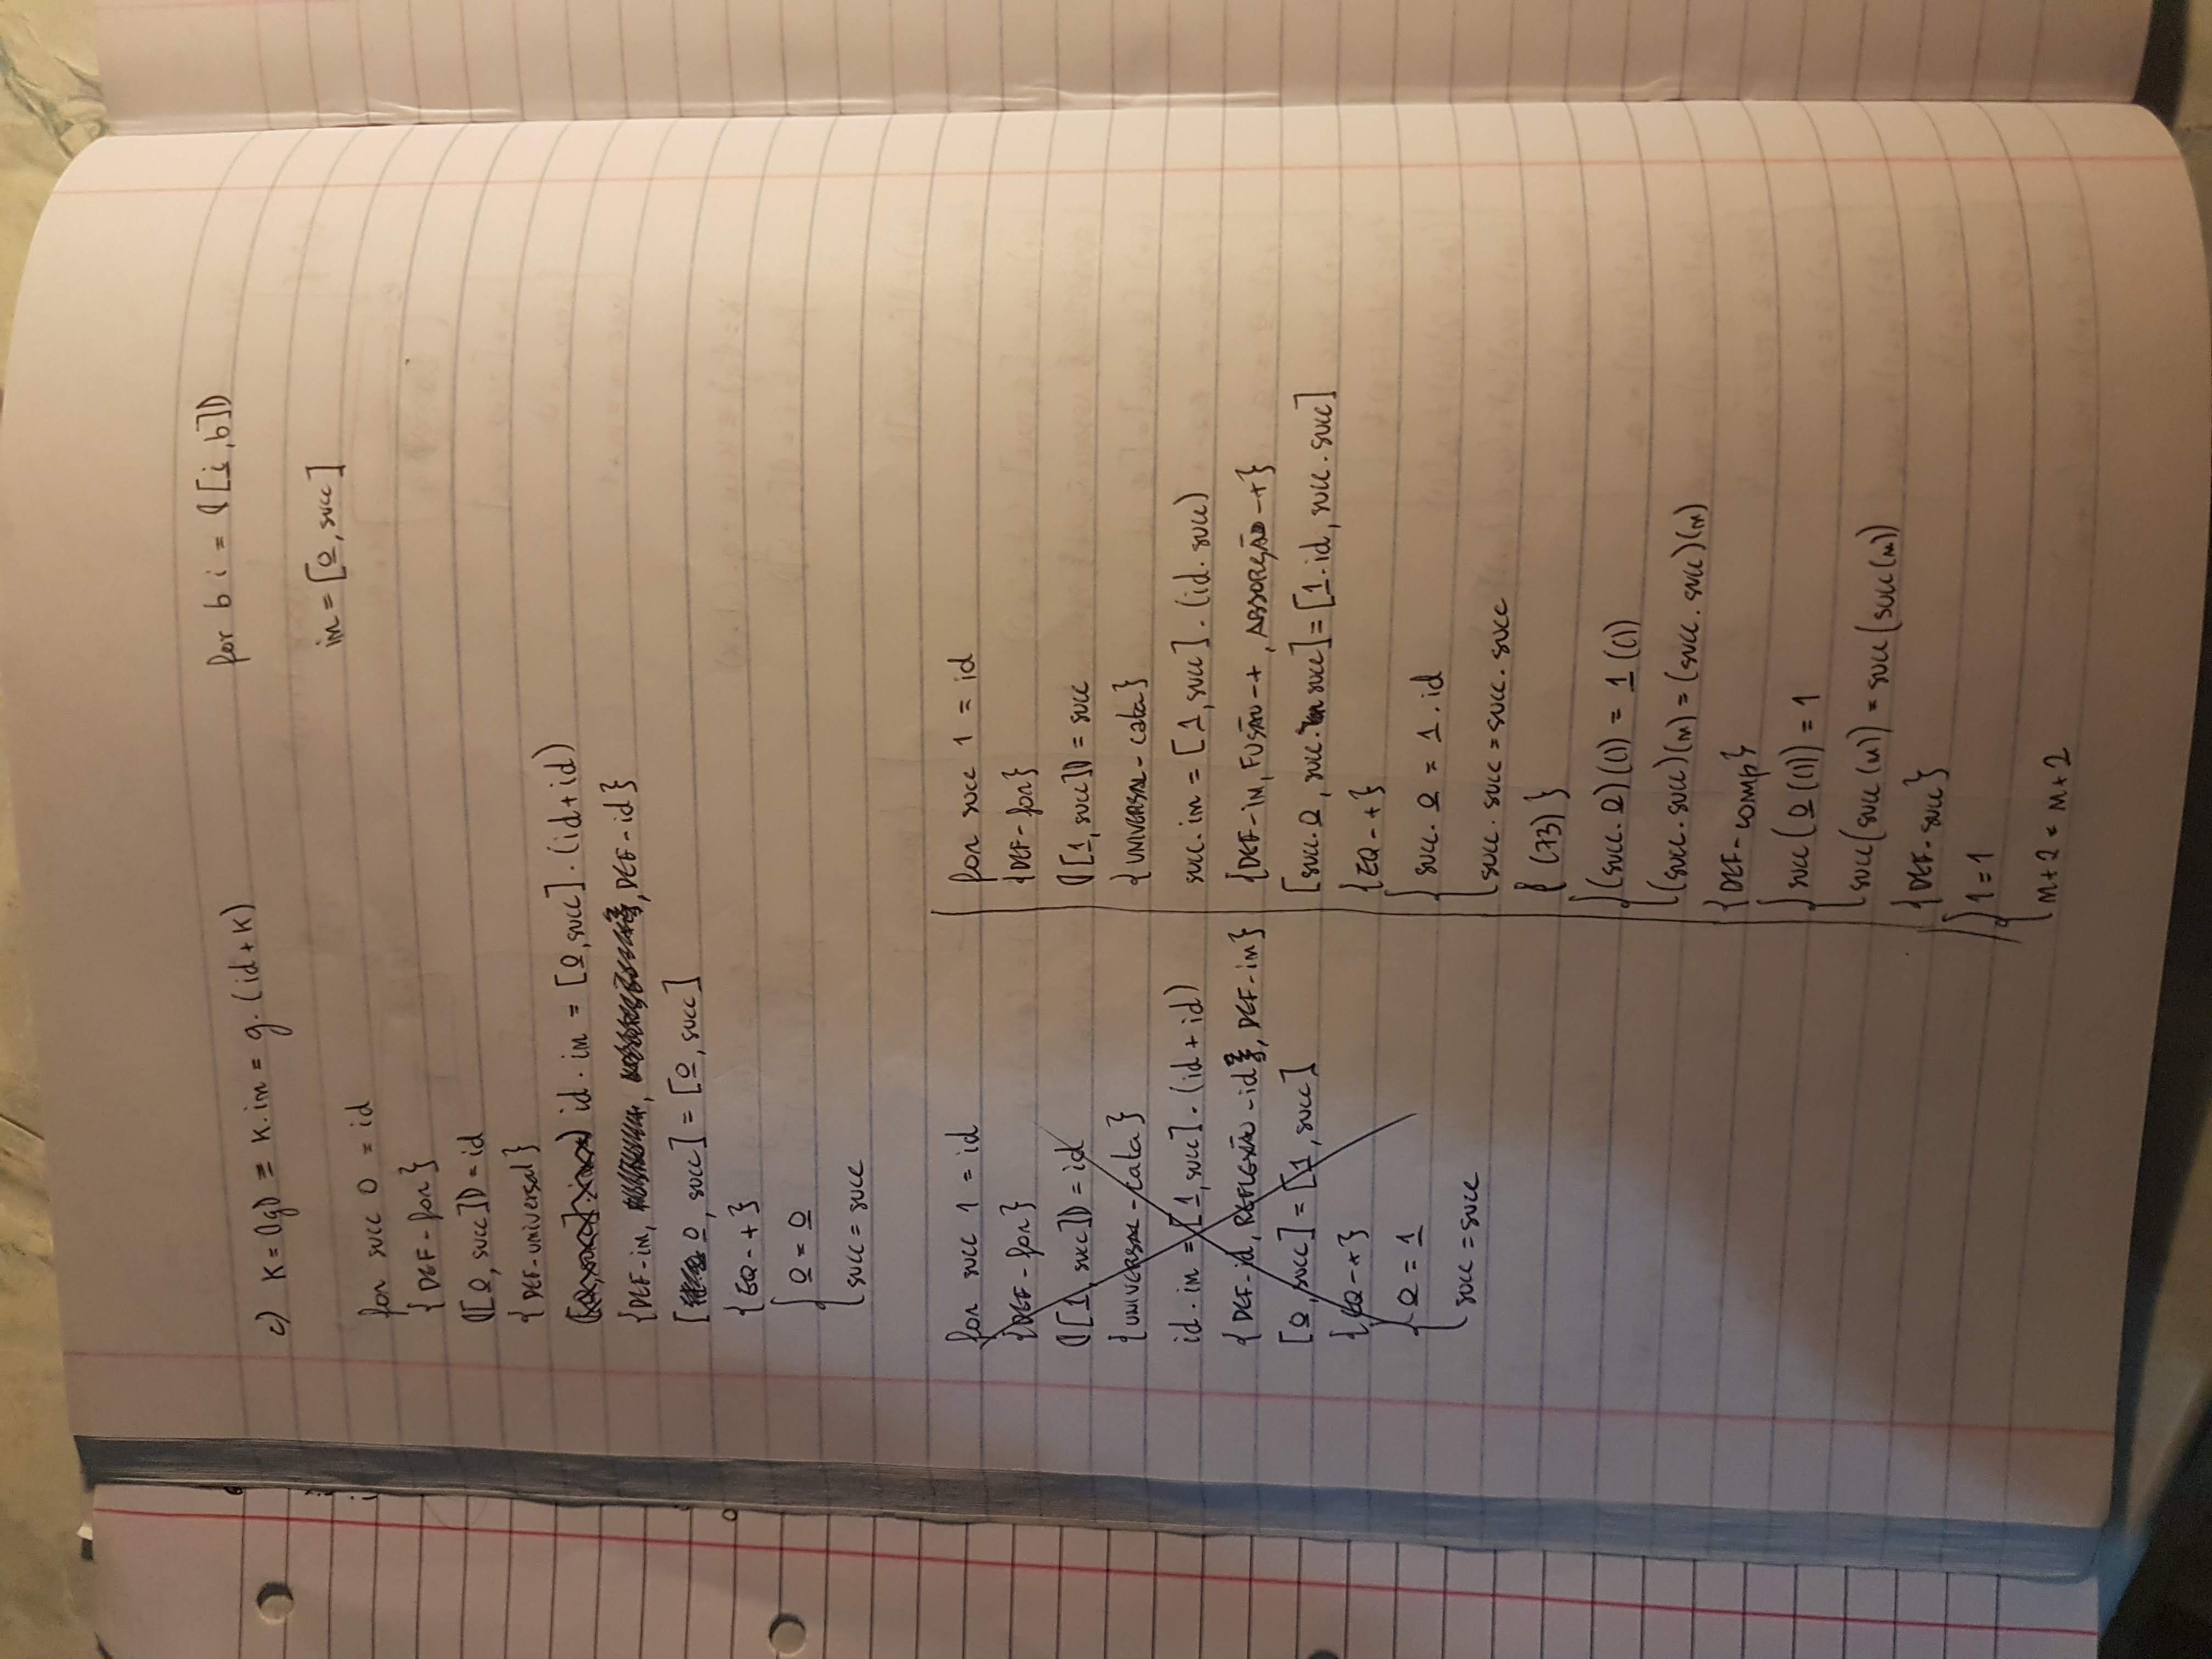 c) K = ⦇g⦈ ≡ K . in = g . (id + K)
for b i = ⦇[i̲, b]⦈
in = [0̲, succ]
for succ 0 = id
{DEF - for}
⦇[0̲, succ]⦈ = id
{DEF - universal}
id . in = [0̲, succ] . (id + id)
{DEF - in, , , DEF - id}
[0̲, succ] = [0̲, succ]
{EQ - +}
0̲ = 0̲
succ = succ
for succ 1 = id
{DEF - for}
⦇[1̲, succ]⦈ = id
{UNIVERSAL - cata}
id . in = [1̲, succ] . (id + id)
{DEF - id, REFLEXÃO - id, DEF - in}
[0̲, succ] = [1̲, succ]
{EQ - +}
0̲ = 1̲
succ = succ
for succ 1 = id
{DEF - for}
⦇[1̲, succ]⦈ = succ
{UNIVERSAL - cata}
succ . in = [1̲, succ] . (id . succ)
{DEF - IN, FUSÃO - +, ABSORÇÃO - +}
[succ . 0̲, succ . succ] = [1̲ . id, succ . succ]
{EQ - +}
succ . 0̲ = 1̲ . id
succ . succ = succ . succ
{ (73) }
(succ . 0̲)(()) = 1̲ (())
(succ . succ)(n) = (succ . succ)(n)
{DEF - comp}
succ(0̲ (())) = 1
succ(succ(n)) = succ(succ(n))
{DEF - succ}
1 = 1
n + 2 = n + 2